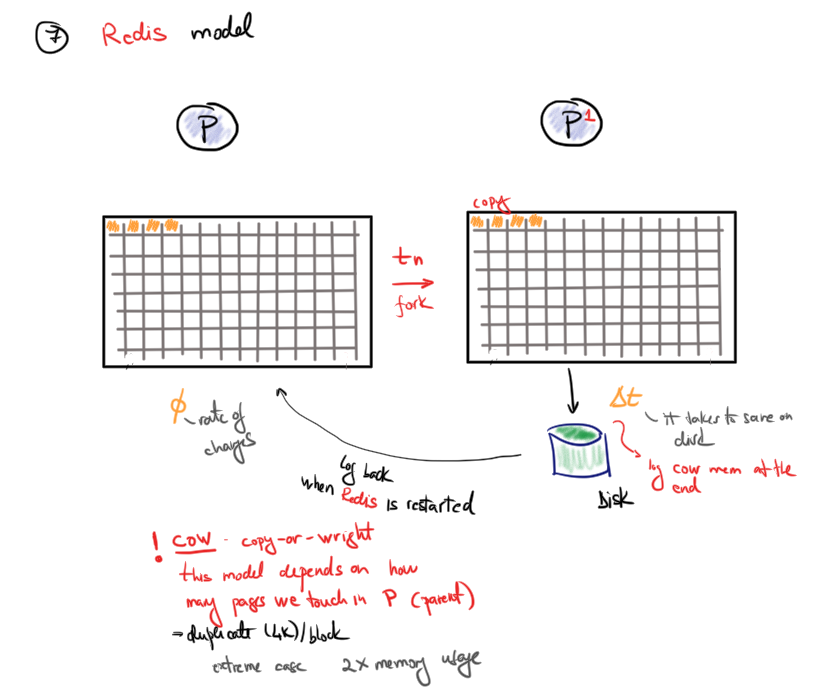 7 Redis model
P
P1
copy
tn
fork
ϕ
rate of
changes
Δt
it takes to save on
disk
log cow mem at the
end
Disk
log back
when Redis is restarted
! COW - copy-or-wright
this model depends on how
may pages we touch in P (parent)
→ duplicate (4K)/block
extreme case 2x memory usage